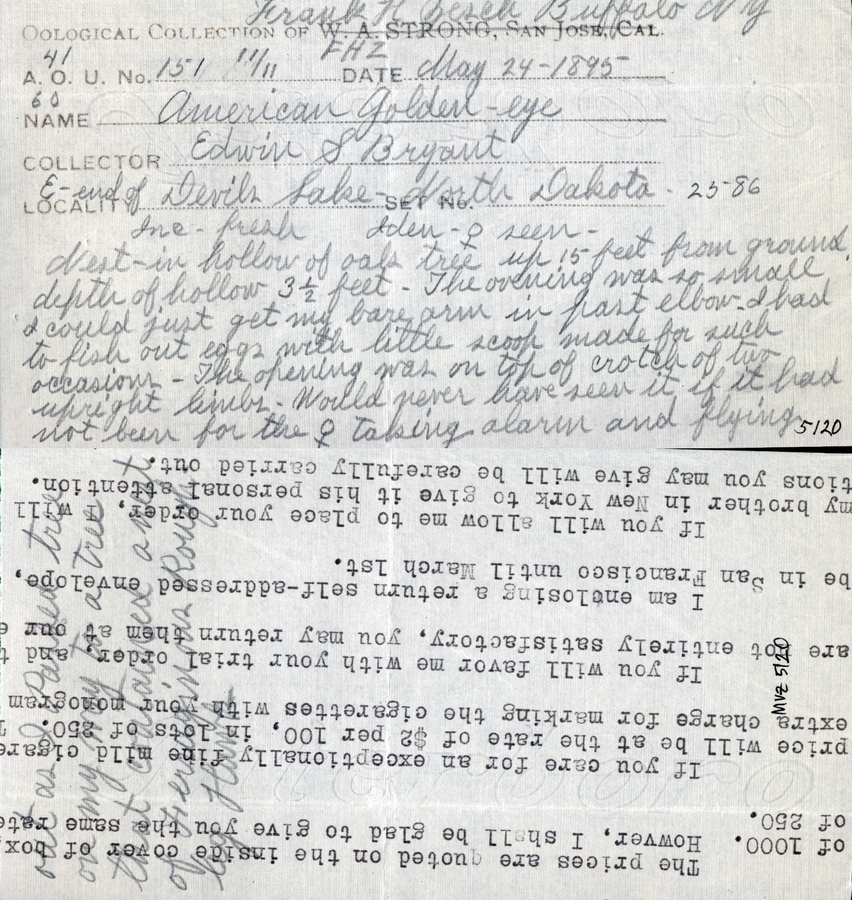 Frank H Buffalo N Y
OOLOGICAL COLLECTION OF W. A. STRONG, SAN JOSE, CAL.
FHZ
41
A. O. U. No. 151 11/11 DATE May 24-1895
60
NAME American Golden-eye
COLLECTOR Edwin S Bryant
E-end of
LOCALITY Devils Lake-North Dakota. SET No. 25-86
Inc-fresh Iden-♀ seen-
Nest-in hollow of oak tree up 15 feet from ground.
depth of hollow 3½ feet - The ovening was so small
I could just get my bare arm in past elbow. I had
to fish out eggs with little scoop made for such
occasions - The opening was on top of crotch of two
upright limbs - Would never have seen it if it had
not been for the ♀ taking alarm and flying
5120
out as I passed tree
on my way to a tree
that contained a nest
of Ferruginous Rough
leg Hawk
MVZ 5120
The prices are quoted on the inside cover of box,
of 1000. Howver, I shall be glad to give you the same rate
of 250.
If you care for an exceptionally fine mild cigare
price will be at the rate of $2 per 100, in lots of 250. T
extra charge for marking the cigarettes with your monogram
If you will favor me with your trial order, and t
are not entirely satisfactory, you may return them at our e
I am enclosing a return self-addressed envelope,
be in San Francisco until March 1st.
If you will allow me to place your order, I will
my brother in New York to give it his personal attention.
tions you may give will be carefully carried out.